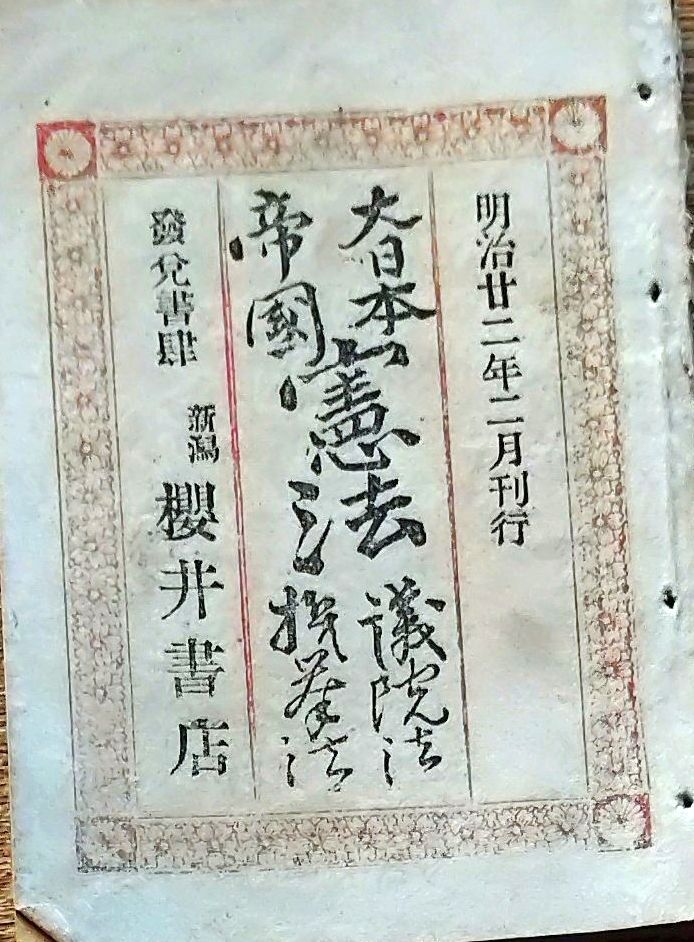 明治廿二年二月刊行
大日本
帝國
憲法
議院法
撰擧法
發兌書肆
新潟
櫻井書店